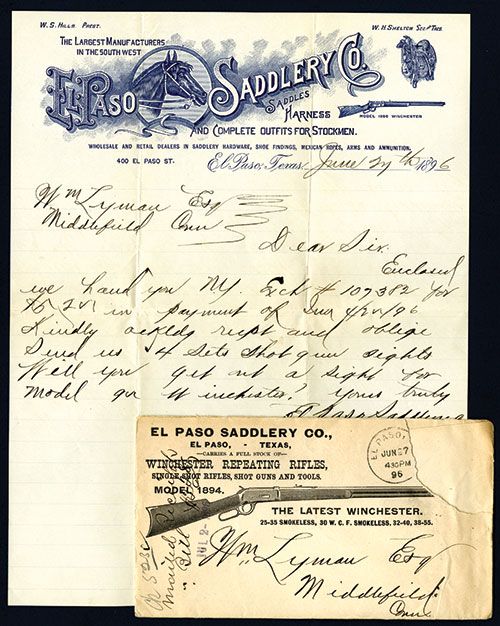 W. S. Hills Prest.
W. H. Shelton Sec and Treas.
The Largest Manufacturers
in the South West
El Paso Saddlery Co.
Saddles
Harness
Model 1886 Winchester
and Complete Outfits for Stockmen.
Wholesale and Retail Dealers in Saddlery Hardware, Shoe Findings, Mexican Ropes, Arms and Ammunition.
400 El Paso St.
El Paso, Texas, June 27th 1896
Wm Lyman Esq
Middlefield Conn
Dear Sir.
Enclosed
we hand you N.Y. Exch # 107382 for
in payment of
Kindly rect and oblige
Send us 4 sets shot gun sights
Will you get out a sight for
Model Winchester? Yours truly
El Paso Saddlery
EL PASO SADDLERY CO.,
EL PASO, - TEXAS,
—CARRIES A FULL STOCK OF—
WINCHESTER REPEATING RIFLES,
SINGLE SHOT RIFLES, SHOT GUNS AND TOOLS.
MODEL 1894.
THE LATEST WINCHESTER.
25-35 SMOKELESS, 30 W. C. F. SMOKELESS, 32-40, 38-55.
EL PASO,
JUN 27
430 PM
96
JUL 2-
Mailed
Wm Lyman Esq
Middlefield
Conn